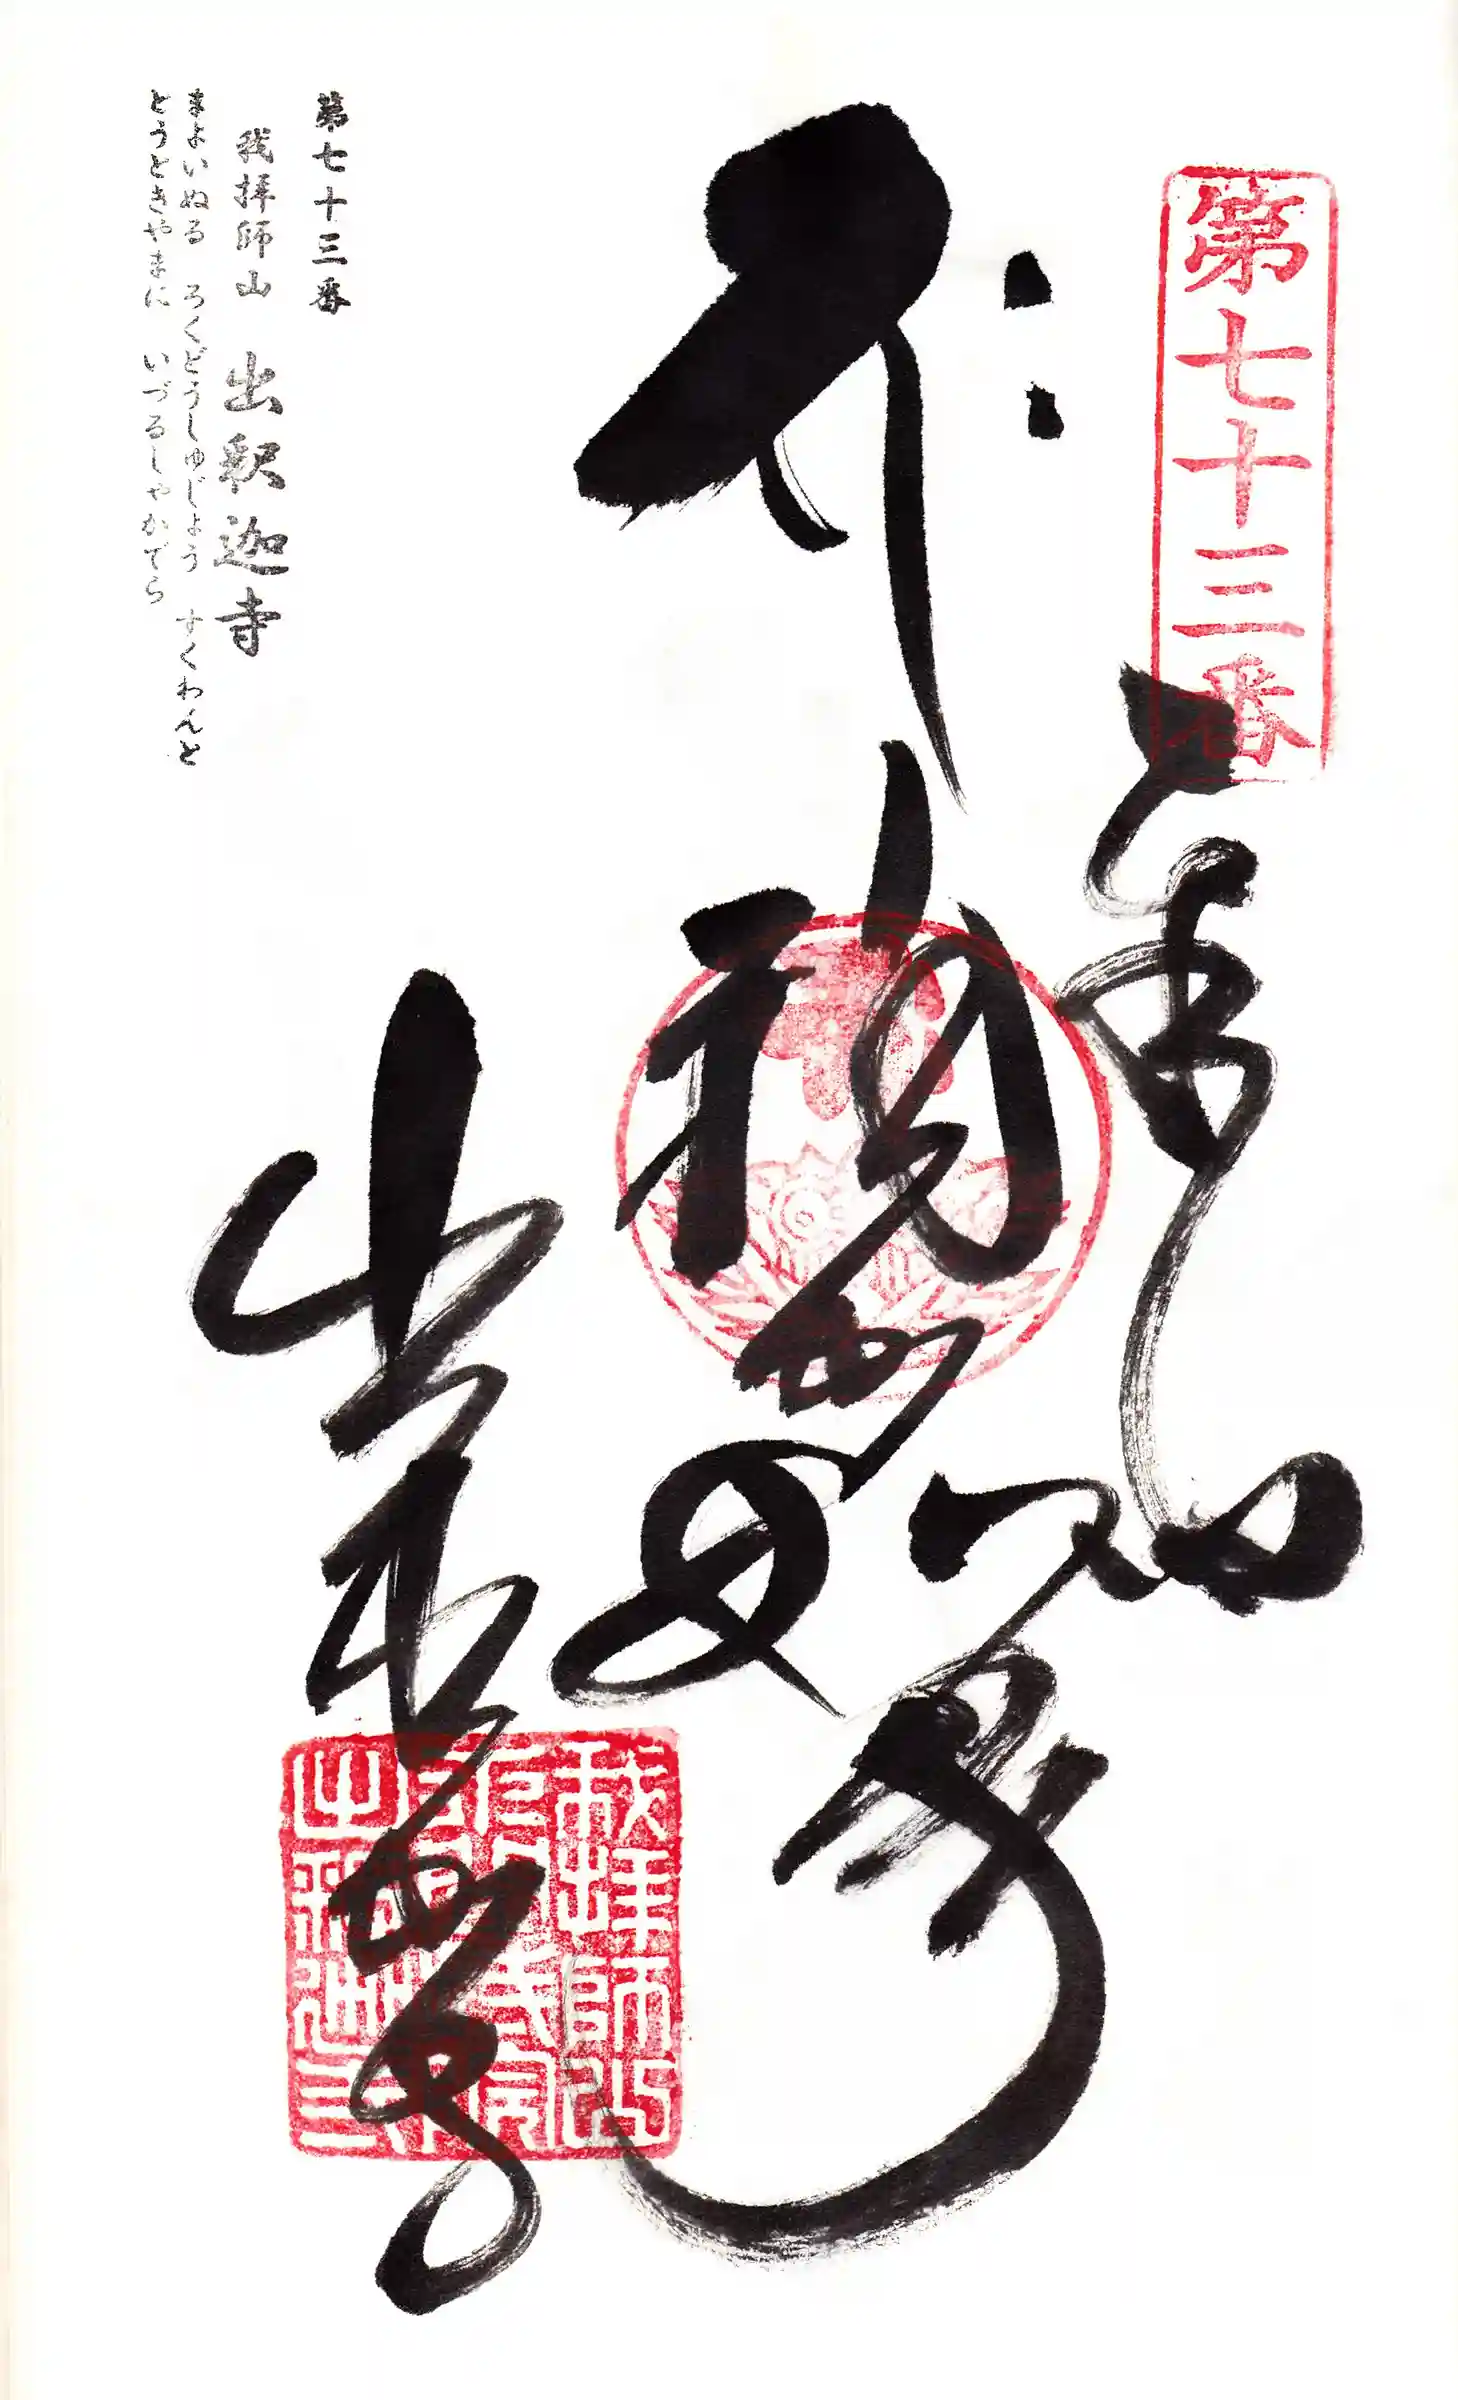 第七十三番
釈迦如来
出釈迦寺
我拝師山
第七十三番
我拝師山 出釈迦寺
まよいぬる ろくどうしゅじょう すくわんと
とうときやまに いづるしやかでら